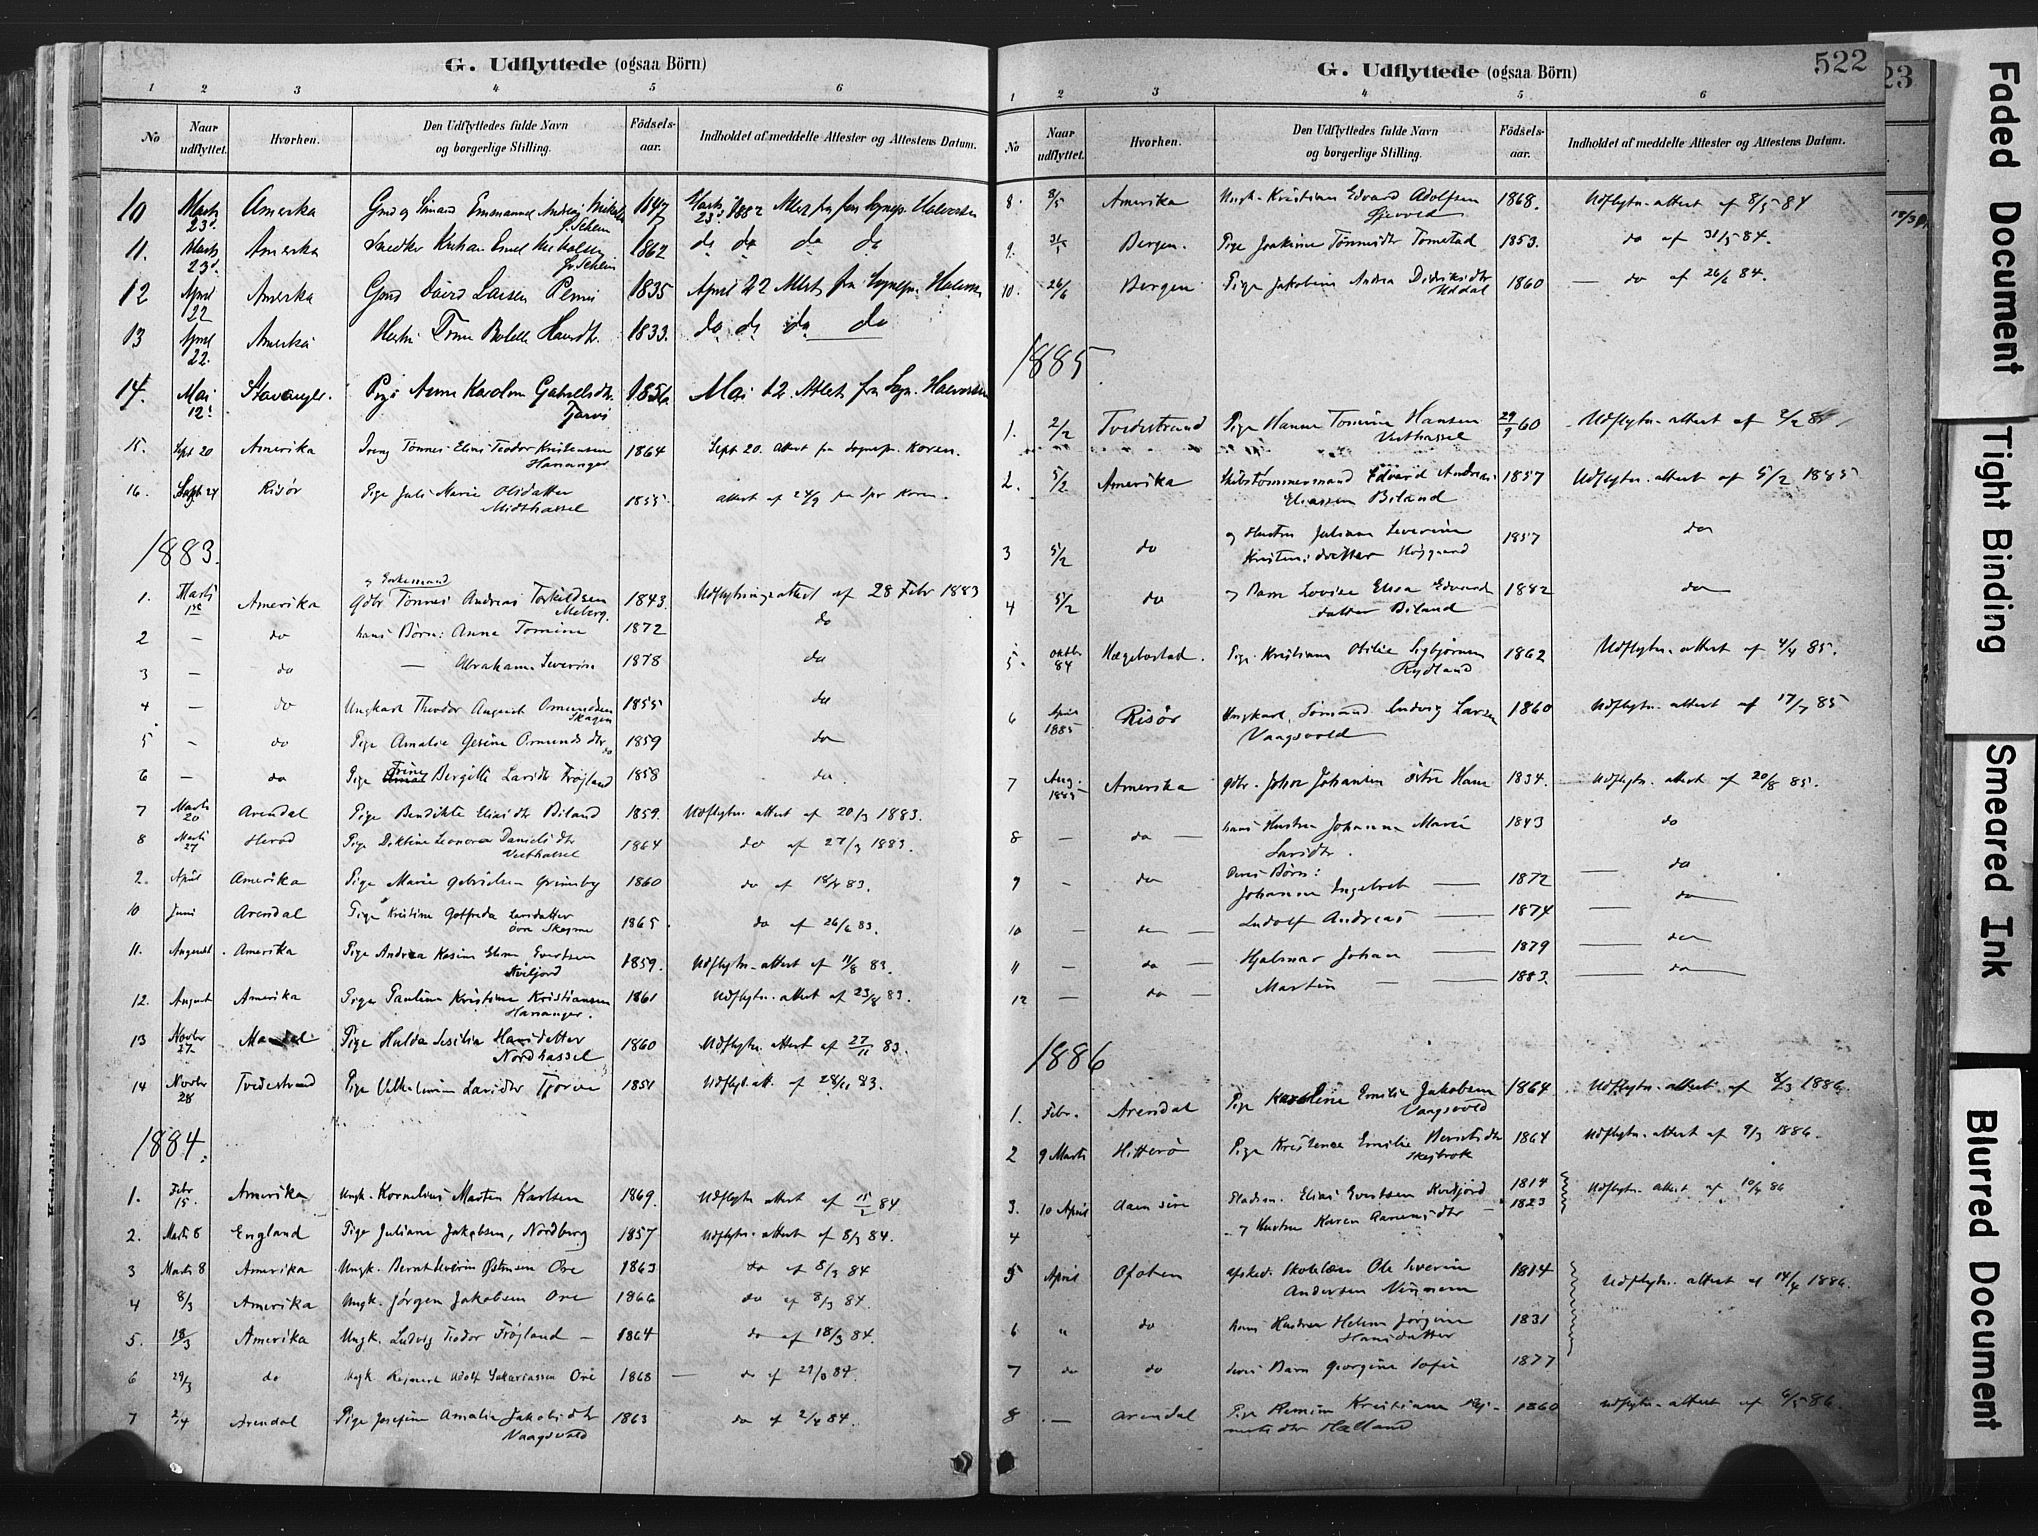 G. Udflyttede (ogsaa Börn)
1 2 3 4 5 6
No
Naar udflyttet.
Hvorhen.
Den Udflyttedes fulde Navn og borgerlige Stilling.
Födsels-aar.
Indholdet af meddelte Attester og Attestens Datum.
10 Marts 23d. Amerika Emmanuel 1847 Marts 23d. 1882 Attest fra Sognepr. Halvorsen
11. Marts 23d. Amerika Snedker 1862 do do do do
12 April 22 Amerika Gmd David Larsen 1835 April 22 Attest fra Sognepr. Halvorsen
13 April 22. Amerika Hustru 1833. do do do do
14. Mai 12. Stavanger. Pige Anne Karoline Gabrielsdtr. 1856 Mai 12. Attest fra Sogn. Halvorsen
15. Sept 20 Amerika Dreng Tönnes Elias Teodor Kristensen 1864 Sept 20. Attest fra Sognepr. Koren.
Hananger
16. Sept 24 Risör Pige Juli Marie Olsdatter 1855 attest af 24/9 fra Spr Koren
Midthassel
1883.
1. Marts Amerika Gdbr. Tönnes Andreas Torkildsen 1843. Udflytningsattest af 28 Febr 1883
2 — do hans Börn: Anna Tomine 1872 do
3 — do — Abraham Severin 1878 do
4 — do Ungkarl Theodor August Omundsen 1855 do
Skagen
5 — do Pige Amalie Gesine Omunds dtr 1859 do
6 — do Pige Trine Bergitte Larsdtr Fröjland 1858 do
7 Marts 20 Arendal Pige Bendikte Eliasdtr Biland 1859. Udflytn. attest af 20/3 1883.
8 Marts 27 Herad Pige Leonora Danielsdtr 1864 do af 27/3 1883.
Vesthassel
2. April Amerika Pige Marie Gabrielsen Grimsby 1860 do af 18/4 83.
10 Juni Arendal Pige Kristine Gotfreda Larsdatter 1865. do af 26/6 83.
11. August Amerika Pige Andrea Kasine Evertsen 1859. Udflytn. attest af 11/8 83.
Kviljord
12. August Amerika Pige Pauline Kristine Kristiansen 1861 Udflytn. attest af 23/8 83.
Hananger.
13 Novbr 27 Mandal Pige Hulda Sesilia Hansdatter 1860 Udflytn. attest af 27/11 83
Nordhassel
14 Novbr 28 Tvedestrand Pige Vilhelmine Larsdtr Tjorve 1851 Udflyt. att. af 28/11 83.
1884.
1. Febr 15. Amerika Ungk. Kornelius Marten Karlsen 1869. Udflytn attest af 15/2 84
2. Marts 8 England Pige Juliane Jakobsen, Nordberg 1857 Udflytn. attest af 8/3 84.
3 Marts 8 Amerika Ungk. Bernt Severin Östensen Ore 1863 do af 8/3 84
4 8/3 Amerika Ungk. Jörgen Jakobsen Ore 1866 do af 8/3 84.
5. 18/3 Amerika Ungk. Ludvig Teodor Fröjland — 1864 do af 18/3 84.
6 29/3 do Ungk. Reinert Adolf Sakariassen Ore 1868 — do af 29/3 84.
7 2/4 Arendal Pige Josefine Amalie Jakobsdtr 1863 do af 2/4 84.
Vaagsvold
G. Udflyttede (ogsaa Börn)
522
23
1 2 3 4 5 6
No
Naar udflyttet.
Hvorhen.
Den Udflyttedes fulde Navn og borgerlige Stilling.
Födsels-aar.
Indholdet af meddelte Attester og Attestens Datum.
8. 8/5 Amerika Ungk. Kristian Edvard Adolfsen 1868. Udflytn. attest af 8/5 84
9. 31/5 Bergen. Pige Joakime Tönnesdtr Tomstad 1853. do af 31/5 84.
10. 26/6 Bergen Pige Jakobine Andrea Didriksdtr 1860 — do af 26/6 84.
Uddal
1885.
1. 2/2 Tvedestrand Pige Hanne Tomine Hansen 29/9 60 Udflytn. attest af 2/2 85
Vesthassel
2. 5/2 Amerika Skibstömmermand Edvard Andreas 1857 Udflytn. attest af 5/2 1885
Eliassen Biland
3 5/2 do og Hustru Juliane Severine 1857 do
Kristensdatter Höjgaard
4 5/2 do og Barn Lovise Elisa Edvards 1882 do
datter Biland —
5. oktbr 84 Hægebostad. Pige Kristiane Otilie Sigbjörnsen 1862 Udflytn. attest af 4/4 85.
Rydland
6 April 1885 Risör Ungkarl, Sömand Ludvig Larsen 1860 Udflytn. attest af 85
Vaagsvold
7 Aug. 1885 Amerika gdbr. Johan Johansen östre Hane 1834. Udflytn. attest af 20/8 85.
8 — do — hans Hustru Johanne Marie 1843 do
Larsdtr.
9 — do Deres Börn:
Johanne Ingebret — 1872 — do
10 — do — Ludolf Andreas — 1874 — do
11 — do — Hjalmar Johan — 1879 — do
12 — do — Martin — 1883. — do
1886
1. Febr. Arendal Pige Karoline Emilie Jakobsen 1864 Udflytn. attest af 8/3 1886.
Vaagsvold
2 9 Marts Hitterö Pige Kristence Emilie Berntsdtr 1864 Udflytn. attest af 9/3 1886.
3. 10 April Elias Evertsen Kviljord 1814 Udflytn. attest af 10/4 86
4 og Hustru Karen 1823
5 April Ofoten afsked. Skolelærer Ole Severin 1814 Udflytn. attest af 14/4 1886.
Andersen
6 " do hans Hustru Helene Jörgine 1831
Hansdatter
7 do do deres Barn Georgine Sofie 1877
8 — Arendal Pige Kristiane 1860 udflytn. attest af 6/5 86.
Halland
Faded Document
Tight Binding
Smeared Ink
Blurred Document